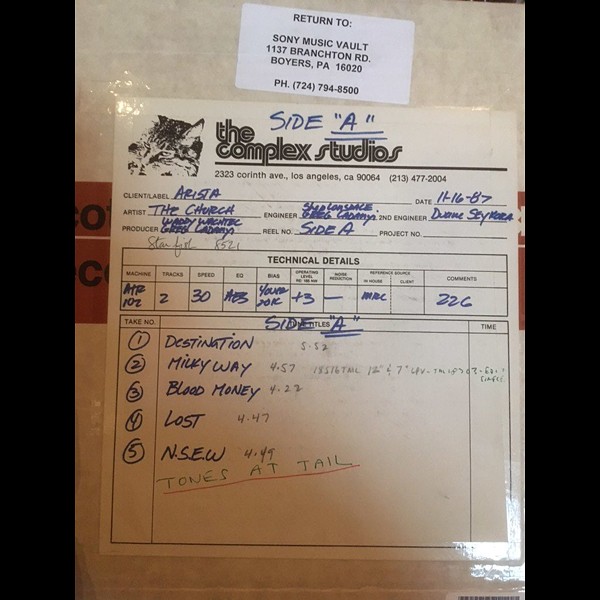 RETURN TO:
SONY MUSIC VAULT
1137 BRANCHTON RD.
BOYERS, PA 16020
PH. (724) 794-8500
SIDE "A"
the complex studios
2323 corinth ave., los angeles, ca 90064 (213) 477-2004
CLIENT/LABEL ARISTA DATE 11-16-87
ARTIST THE CHURCH ENGINEER GREG LADANYI 2ND ENGINEER DUANE SEYKORA
WADDY WACHTEL
PRODUCER GREG LADANYI REEL NO. SIDE A PROJECT NO.
Starfish 8521
TECHNICAL DETAILS
MACHINE TRACKS SPEED EQ BIAS OPERATING LEVEL NOISE REDUCTION REFERENCE SOURCE IN HOUSE CLIENT COMMENTS
ATR 102 2 30 AES +3 — MRL 226
TAKE NO. TITLES TIME
SIDE "A"
1 DESTINATION 5.52
2 MILKY WAY 4.57 12" & 7"
3 BLOOD MONEY 4.22
4 LOST 4.47
5 N.S.E.W 4.49
TONES AT TAIL